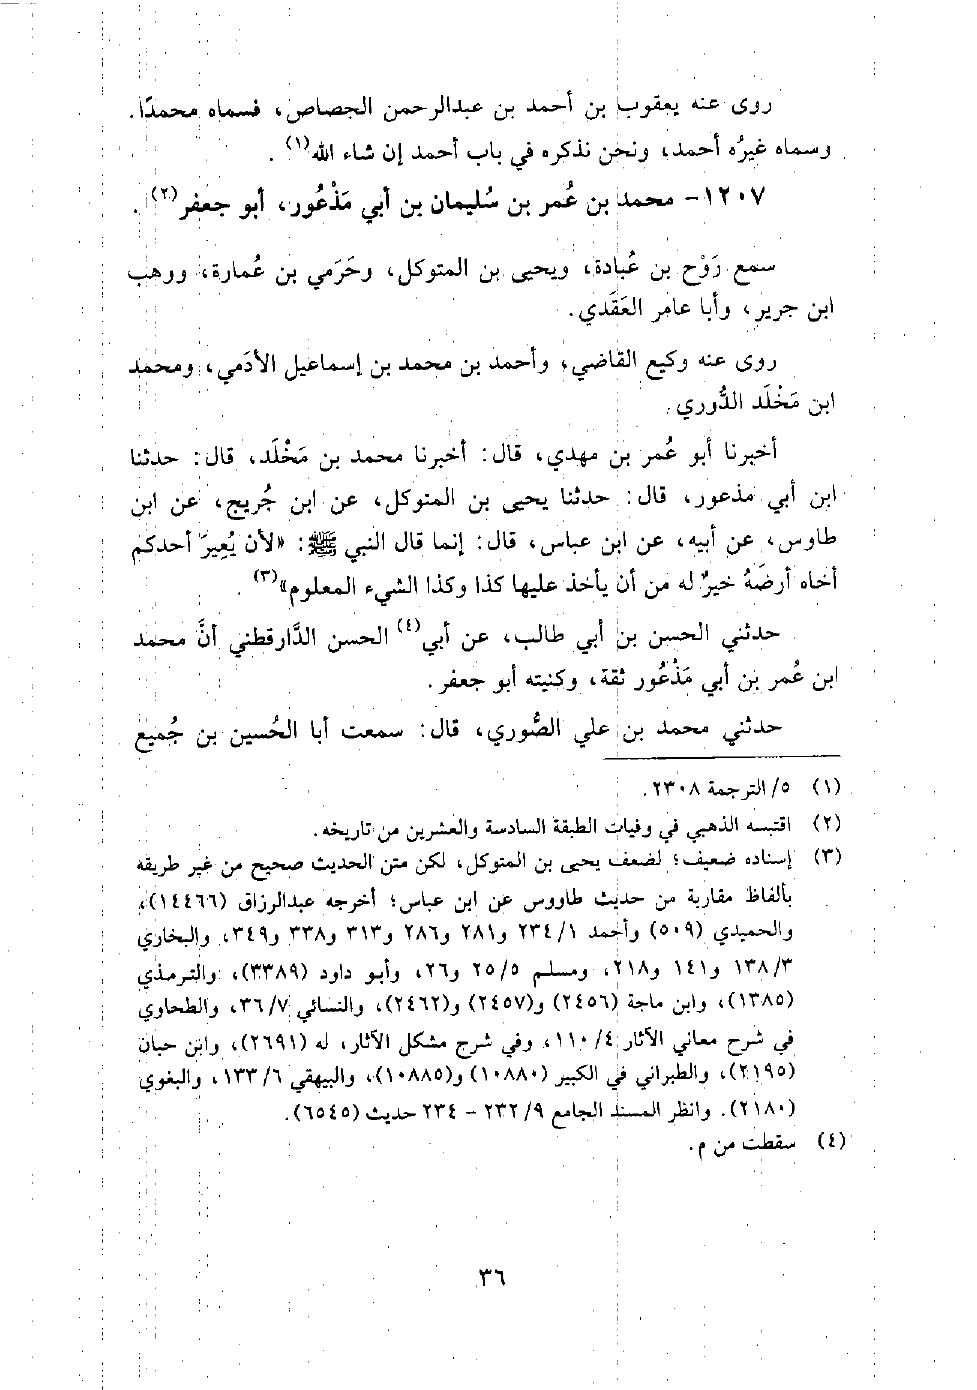 روى عنه يعقوب بن أحمد بن عبدالرحمن الجصاص، فسماه محمدًا.
وسماه غيرُه أحمد، ونحن نذكره في باب أحمد إن شاء الله(١).
١٢٠٧- محمد بن عُمر بن سُليمان بن أبي مَذْعُور، أبو جعفر(٢).
سمع رَوْح بن عُبادة، ويحيى بن المتوكل، وحَرَمي بن عُمارة، ووهب
ابن جرير، وأبا عامر العَقَدي.
روى عنه وكيع القاضي، وأحمد بن محمد بن إسماعيل الأدَمي، ومحمد
ابن مَخْلَد الدُّوري.
أخبرنا أبو عُمر بن مهدي، قال: أخبرنا محمد بن مَخْلَد، قال: حدثنا
ابن أبي مذعور، قال: حدثنا يحيى بن المتوكل، عن ابن جُريج، عن ابن
طاوس، عن أبيه، عن ابن عباس، قال: إنما قال النبي ﷺ: «لأن يُعِيرَ أحدكم
أخاه أرضَهُ خيرٌ له من أن يأخذ عليها كذا وكذا الشيء المعلوم»(٣).
حدثني الحسن بن أبي طالب، عن أبي(٤) الحسن الدَّارقطني أنَّ محمد
ابن عُمر بن أبي مَذْعُور ثقة، وكنيته أبو جعفر.
حدثني محمد بن علي الصُّوري، قال: سمعت أبا الحُسين بن جُميع
(١) ٥/ الترجمة ٢٣٠٨.
(٢) اقتبسه الذهبي في وفيات الطبقة السادسة والعشرين من تاريخه.
(٣) إسناده ضعيف؛ لضعف يحيى بن المتوكل، لكن متن الحديث صحيح من غير طريقه
بألفاظ مقاربة من حديث طاووس عن ابن عباس؛ أخرجه عبدالرزاق (١٤٤٦٦)،
والحميدي (٥٠٩) وأحمد ١/ ٢٣٤ و٢٨١ و٢٨٦ و٣١٣ و٣٣٨ و٣٤٩، والبخاري
٣/ ١٣٨ و١٤١ و٢١٨، ومسلم ٥/ ٢٥ و٢٦، وأبو داود (٣٣٨٩)، والترمذي
(١٣٨٥)، وابن ماجة (٢٤٥٦) و(٢٤٥٧) و(٢٤٦٢)، والنسائي ٧/ ٣٦، والطحاوي
في شرح معاني الآثار ٤/ ١١٠، وفي شرح مشكل الآثار، له (٢٦٩١)، وابن حبان
(٢١٩٥)، والطبراني في الكبير (١٠٨٨٠) و(١٠٨٨٥)، والبيهقي ٦/ ١٣٣، والبغوي
(٢١٨٠). وانظر المسند الجامع ٩/ ٢٣٢ - ٢٣٤ حديث (٦٥٤٥).
(٤) سقطت من م.
٣٦